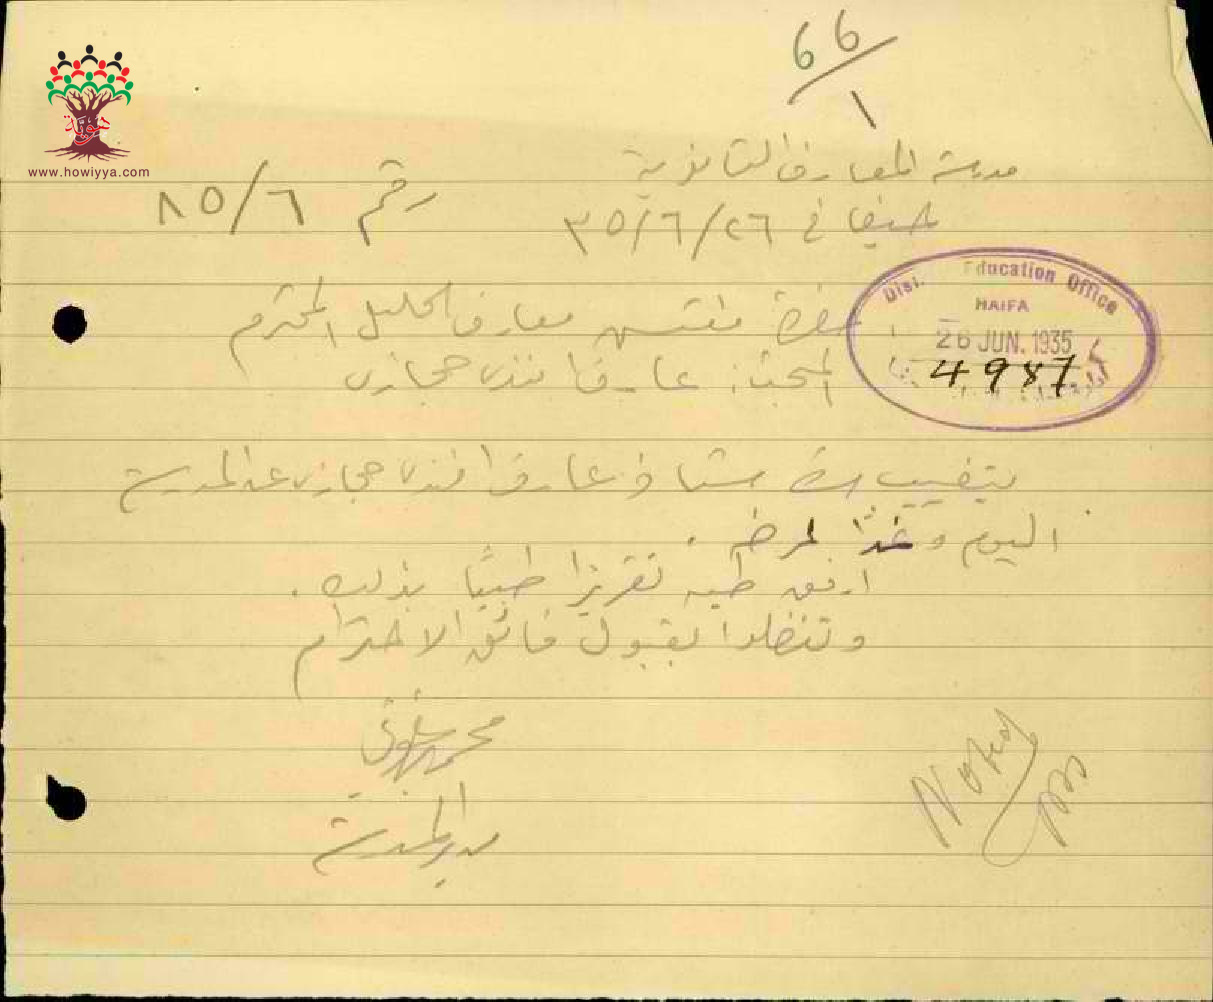 66/1
هوية
www.howiyya.com
مدرسة المعارف الثانوية
رقم ٨٥/٦
حيفا في ٢٦/٦/٣٥
Education Office
HAIFA
26 JUN. 1935
4987
حضرة مفتش معارف الجليل المحترم
المبحث: عارف افندي حجازي
يتغيب عارف افندي حجازي عن المدرسة
اليوم وغدًا لمرضه.
ارفق طيه تقريرًا طبيًا بذلك.
وتفضلوا بقبول فائق الاحترام
محمد
مدير المدرسة
Noted